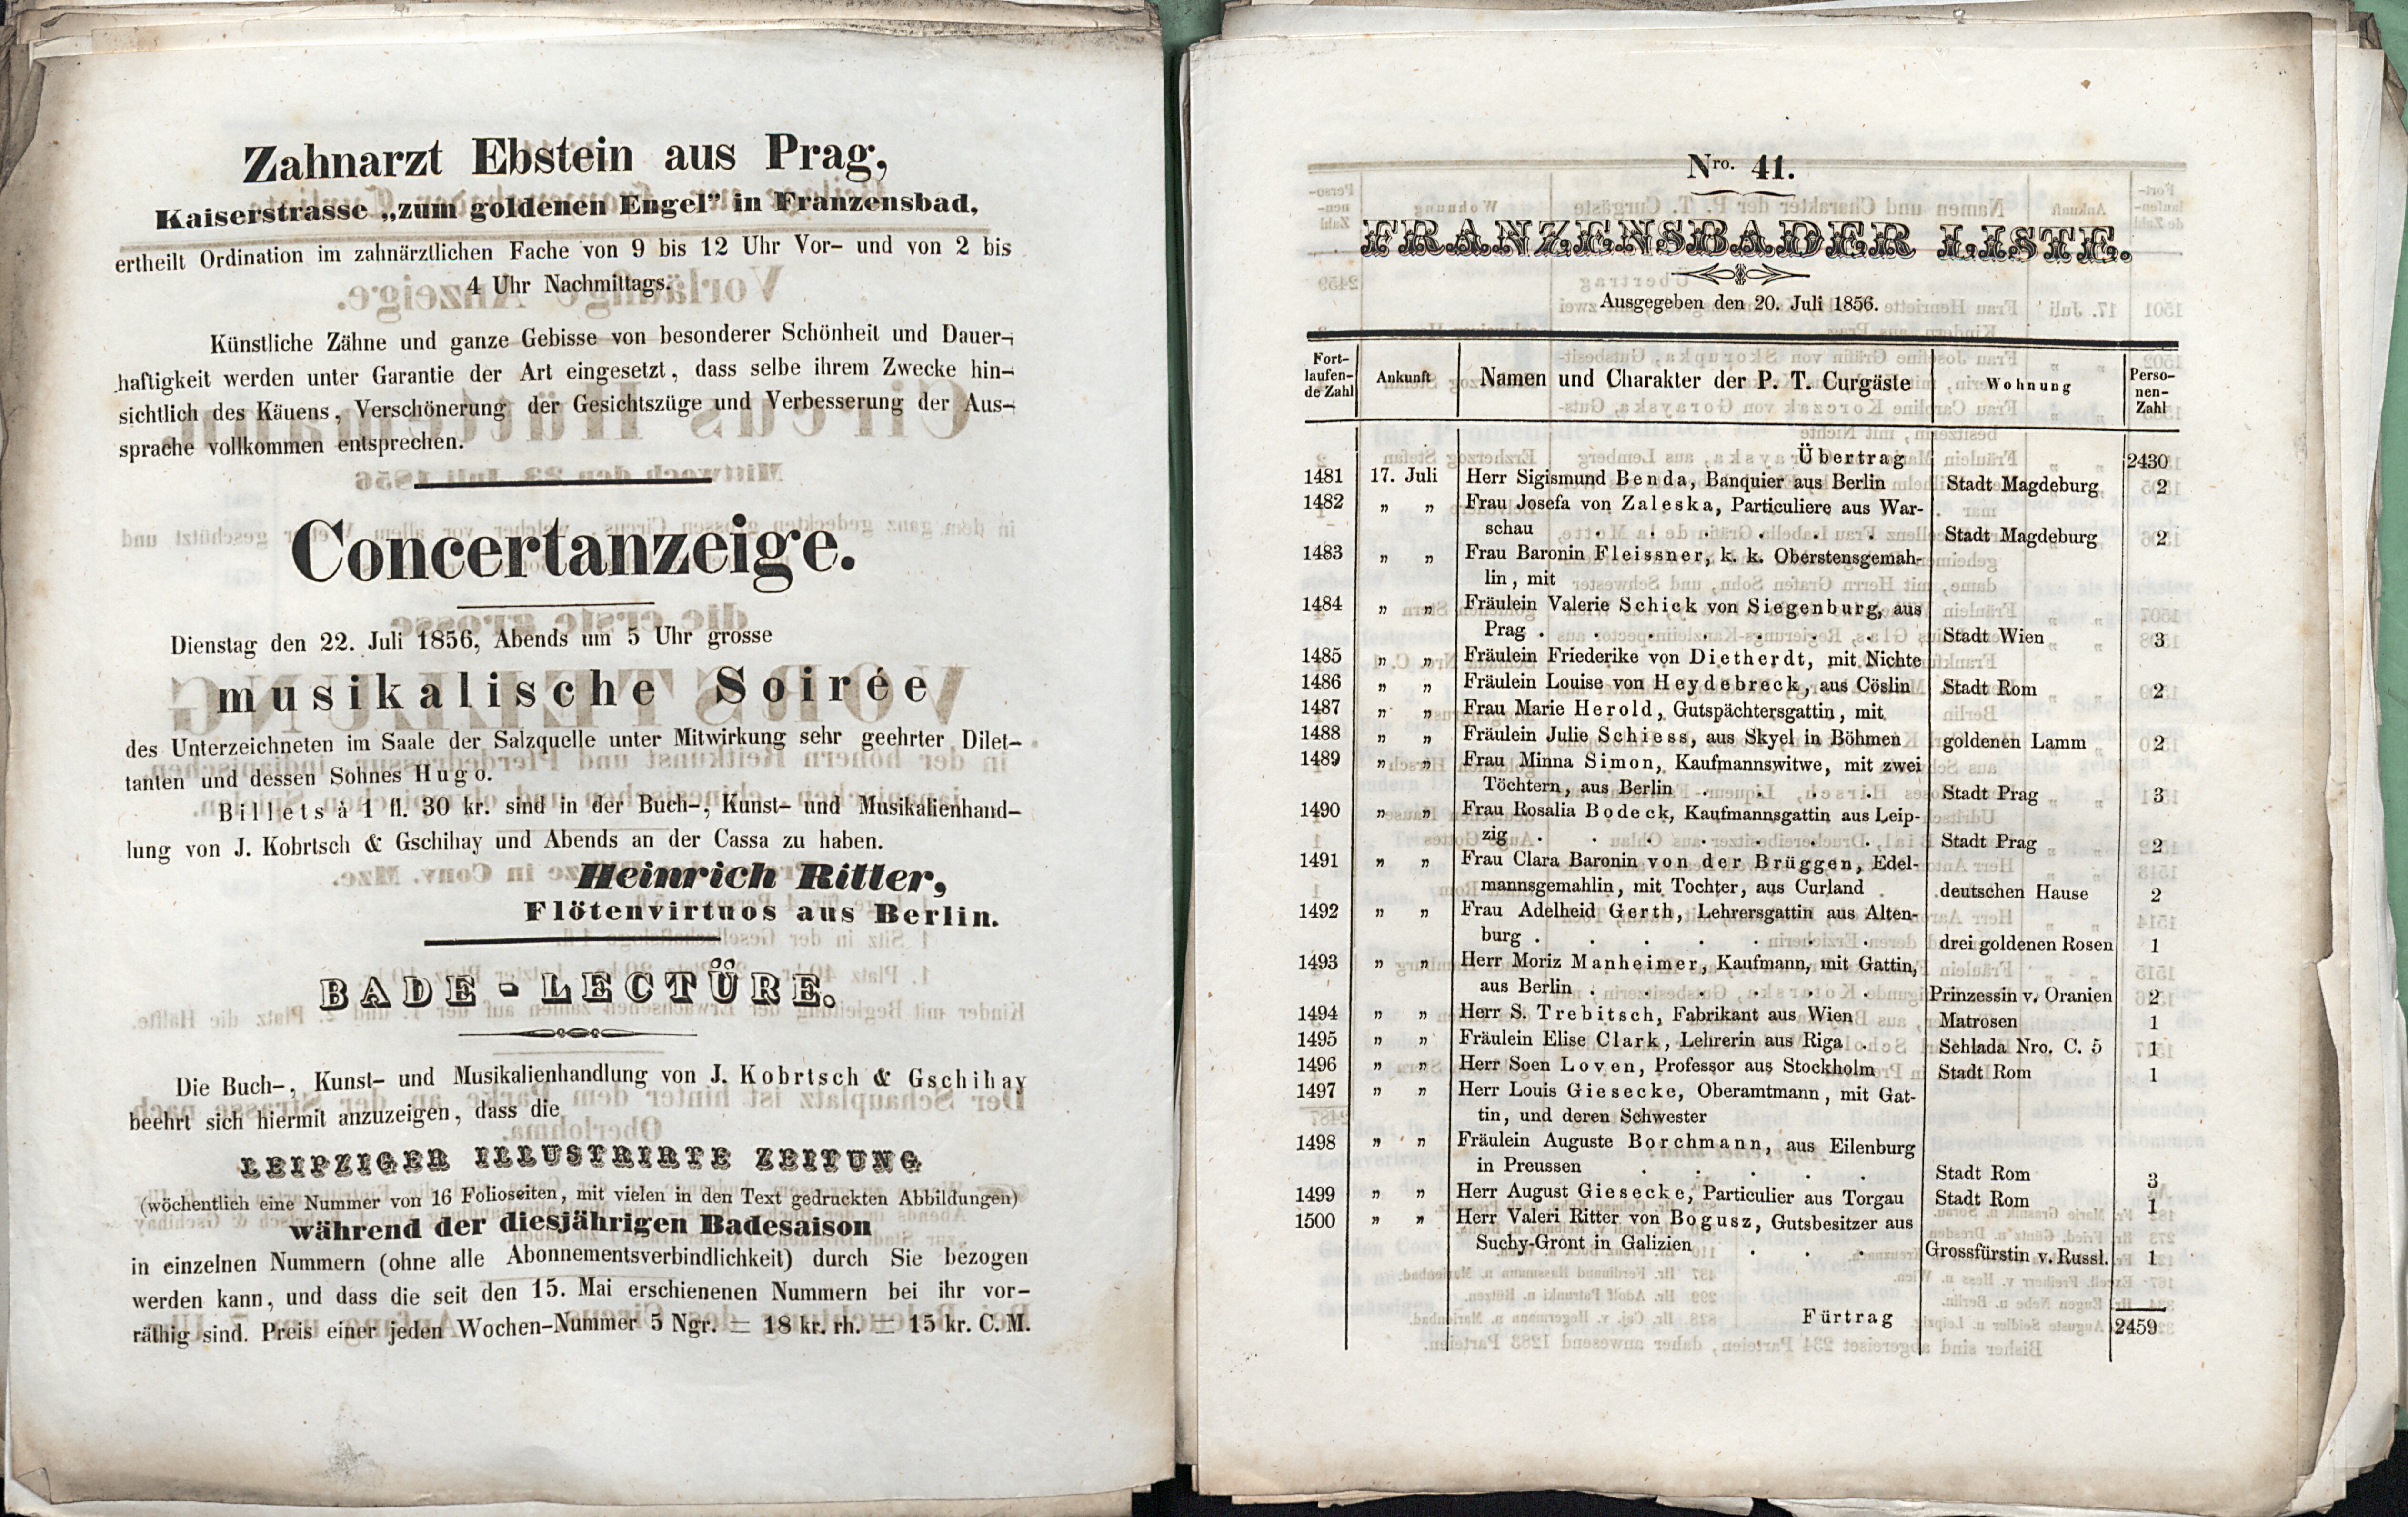 Zahnarzt Ebstein aus Prag,
Kaiserstrasse „zum goldenen Engel” in Franzensbad,
ertheilt Ordination im zahnärztlichen Fache von 9 bis 12 Uhr Vor- und von 2 bis
4 Uhr Nachmittags.
Künstliche Zähne und ganze Gebisse von besonderer Schönheit und Dauer-
haftigkeit werden unter Garantie der Art eingesetzt, dass selbe ihrem Zwecke hin-
sichtlich des Käuens, Verschönerung der Gesichtszüge und Verbesserung der Aus-
sprache vollkommen entsprechen.
Concertanzeige.
Dienstag den 22. Juli 1856, Abends um 5 Uhr grosse
musikalische Soirée
des Unterzeichneten im Saale der Salzquelle unter Mitwirkung sehr geehrter Dilet-
tanten und dessen Sohnes Hugo.
Billets à 1 fl. 30 kr. sind in der Buch-, Kunst- und Musikalienhand-
lung von J. Kobrtsch & Gschihay und Abends an der Cassa zu haben.
Heinrich Ritter,
Flötenvirtuos aus Berlin.
BADE-LECTÜRE.
Die Buch-, Kunst- und Musikalienhandlung von J. Kobrtsch & Gschihay
beehrt sich hiermit anzuzeigen, dass die
LEIPZIGER ILLUSTRIRTE ZEITUNG
(wöchentlich eine Nummer von 16 Folioseiten, mit vielen in den Text gedruckten Abbildungen)
während der diesjährigen Badesaison
in einzelnen Nummern (ohne alle Abonnementsverbindlichkeit) durch Sie bezogen
werden kann, und dass die seit den 15. Mai erschienenen Nummern bei ihr vor-
räthig sind. Preis einer jeden Wochen-Nummer 5 Ngr. = 18 kr. rh. = 15 kr. C. M.
Nro. 41.
FRANZENSBADER LISTE.
Ausgegeben den 20. Juli 1856.
Fort-laufen-de Zahl Ankunft Namen und Charakter der P. T. Curgäste Wohnung Perso-nen-Zahl
Übertrag 2430
1481 17. Juli Herr Sigismund Benda, Banquier aus Berlin Stadt Magdeburg 2
1482 „ „ Frau Josefa von Zaleska, Particuliere aus War-
schau . . . . . . Stadt Magdeburg 2
1483 „ „ Frau Baronin Fleissner, k. k. Oberstensgemah-
lin, mit
1484 „ „ Fräulein Valerie Schick von Siegenburg, aus
Prag . . . . . . . Stadt Wien 3
1485 „ „ Fräulein Friederike von Dietherdt, mit Nichte
1486 „ „ Fräulein Louise von Heydebreck, aus Cöslin Stadt Rom 2
1487 „ „ Frau Marie Herold, Gutspächtersgattin, mit
1488 „ „ Fräulein Julie Schiess, aus Skyel in Böhmen goldenen Lamm 2
1489 „ „ Frau Minna Simon, Kaufmannswitwe, mit zwei
Töchtern, aus Berlin . . . . Stadt Prag 3
1490 „ „ Frau Rosalia Bodeck, Kaufmannsgattin aus Leip-
zig . . . . . . . Stadt Prag 2
1491 „ „ Frau Clara Baronin von der Brüggen, Edel-
mannsgemahlin, mit Tochter, aus Curland . deutschen Hause 2
1492 „ „ Frau Adelheid Gerth, Lehrersgattin aus Alten-
burg . . . . . . . drei goldenen Rosen 1
1493 „ „ Herr Moriz Manheimer, Kaufmann, mit Gattin,
aus Berlin . . . . . . Prinzessin v. Oranien 2
1494 „ „ Herr S. Trebitsch, Fabrikant aus Wien Matrosen 1
1495 „ „ Fräulein Elise Clark, Lehrerin aus Riga . Schlada Nro. C. 5 1
1496 „ „ Herr Soen Loven, Professor aus Stockholm Stadt Rom 1
1497 „ „ Herr Louis Giesecke, Oberamtmann, mit Gat-
tin, und deren Schwester
1498 „ „ Fräulein Auguste Borchmann, aus Eilenburg
in Preussen . . . . . Stadt Rom 3
1499 „ „ Herr August Giesecke, Particulier aus Torgau Stadt Rom 1
1500 „ „ Herr Valeri Ritter von Bogusz, Gutsbesitzer aus
Suchy-Gront in Galizien . . . Grossfürstin v. Russl. 1
Fürtrag 2459